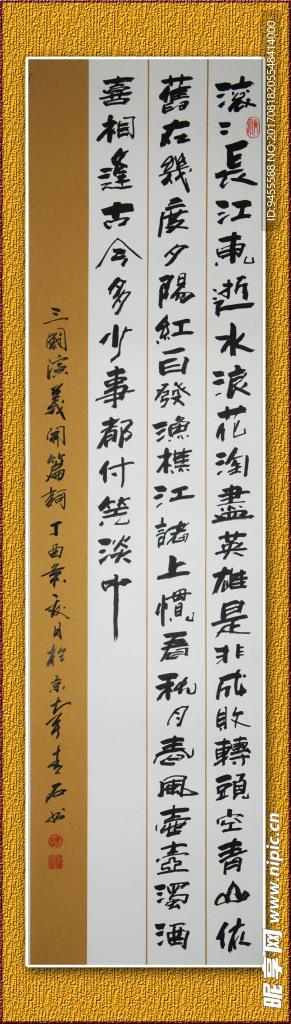 滚〻長江東逝水浪花淘盡英雄是非成敗轉頭空青山依
舊在幾度夕陽紅白發漁樵江渚上慣看秋月春風壹壺濁酒
喜相逢古今多少事都付笑淡中
三國演義開篇詞丁酉年夏月於京華青石书
ID:9455588 NO:20170818205548414000
昵享网 www.nipic.cn